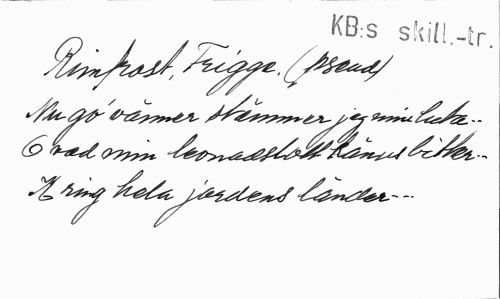 KB:s skill.-tr.
Rimfrost, Frigga. (pseud)
Nu go' vänner stämmer jeg min luta..
O vad min levnadslott kännes bitter..
Kring hela jordens länder---